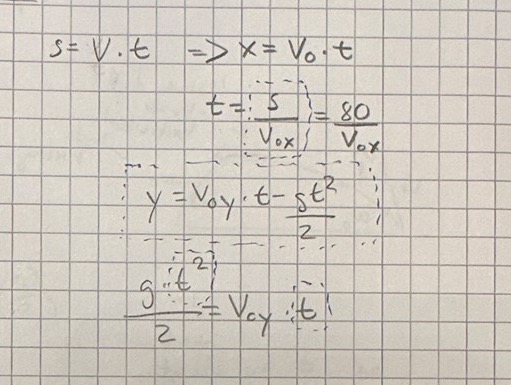 s = V · t => x = V₀ · t
t = s/V₀ₓ = 80/V₀ₓ
y = V₀y · t - gt²/2
g · t²/2 = V₀y · t